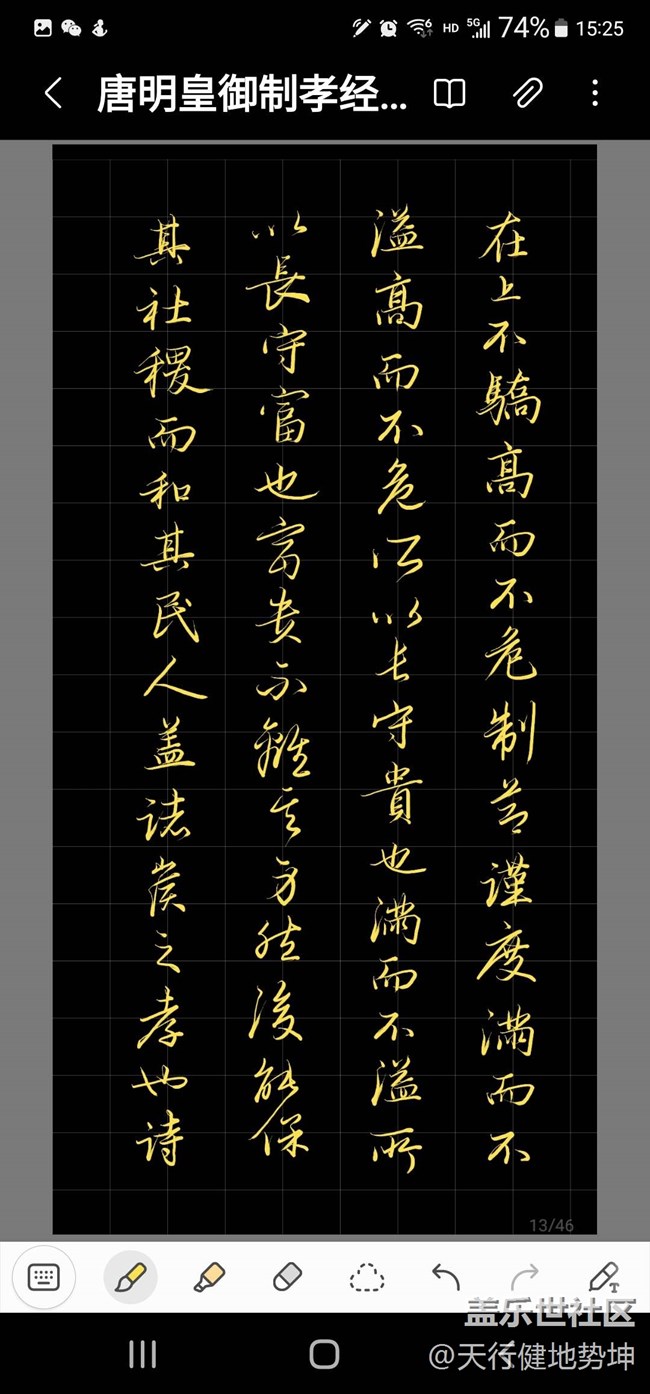 HD 5G 74% 15:25
唐明皇御制孝经...
在上不驕高而不危制节謹度滿而不
溢高而不危所以长守貴也滿而不溢所
以長守富也富贵不離其身然後能保
其社稷而和其民人盖諸侯之孝也诗
13/46
盖乐世社区
@天行健地势坤